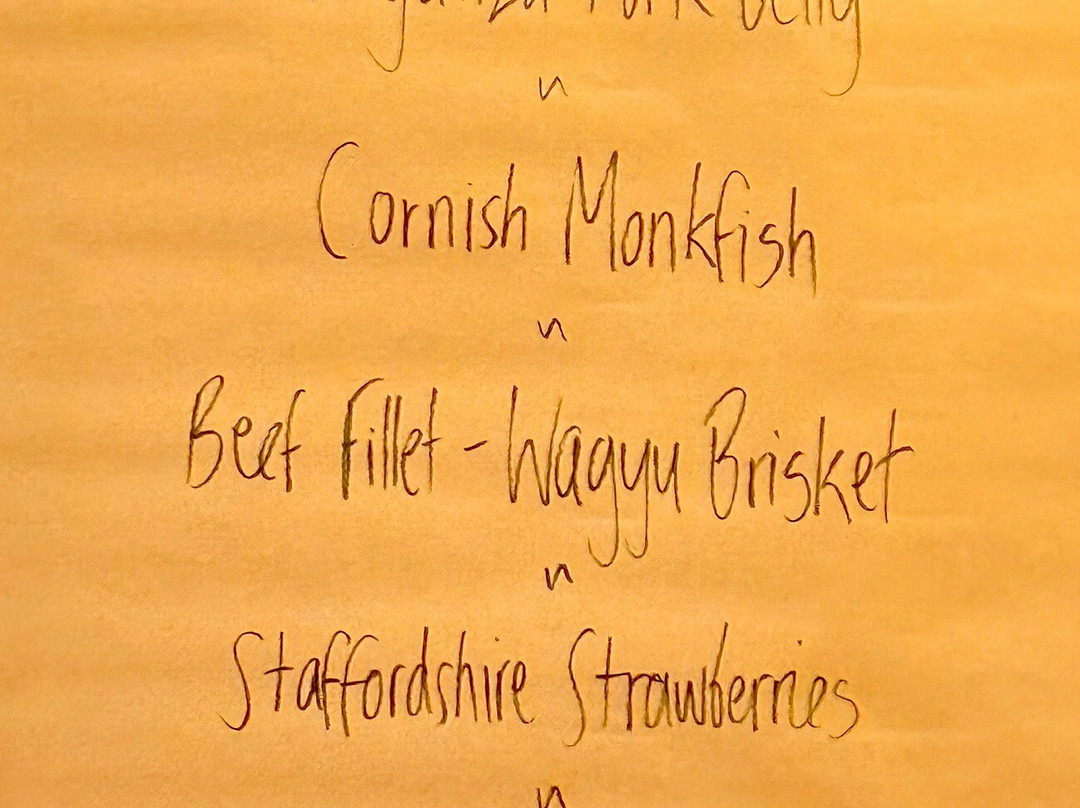 Pork Belly
~
Cornish Monkfish
~
Beef Fillet - Wagyu Brisket
~
Staffordshire Strawberries
~